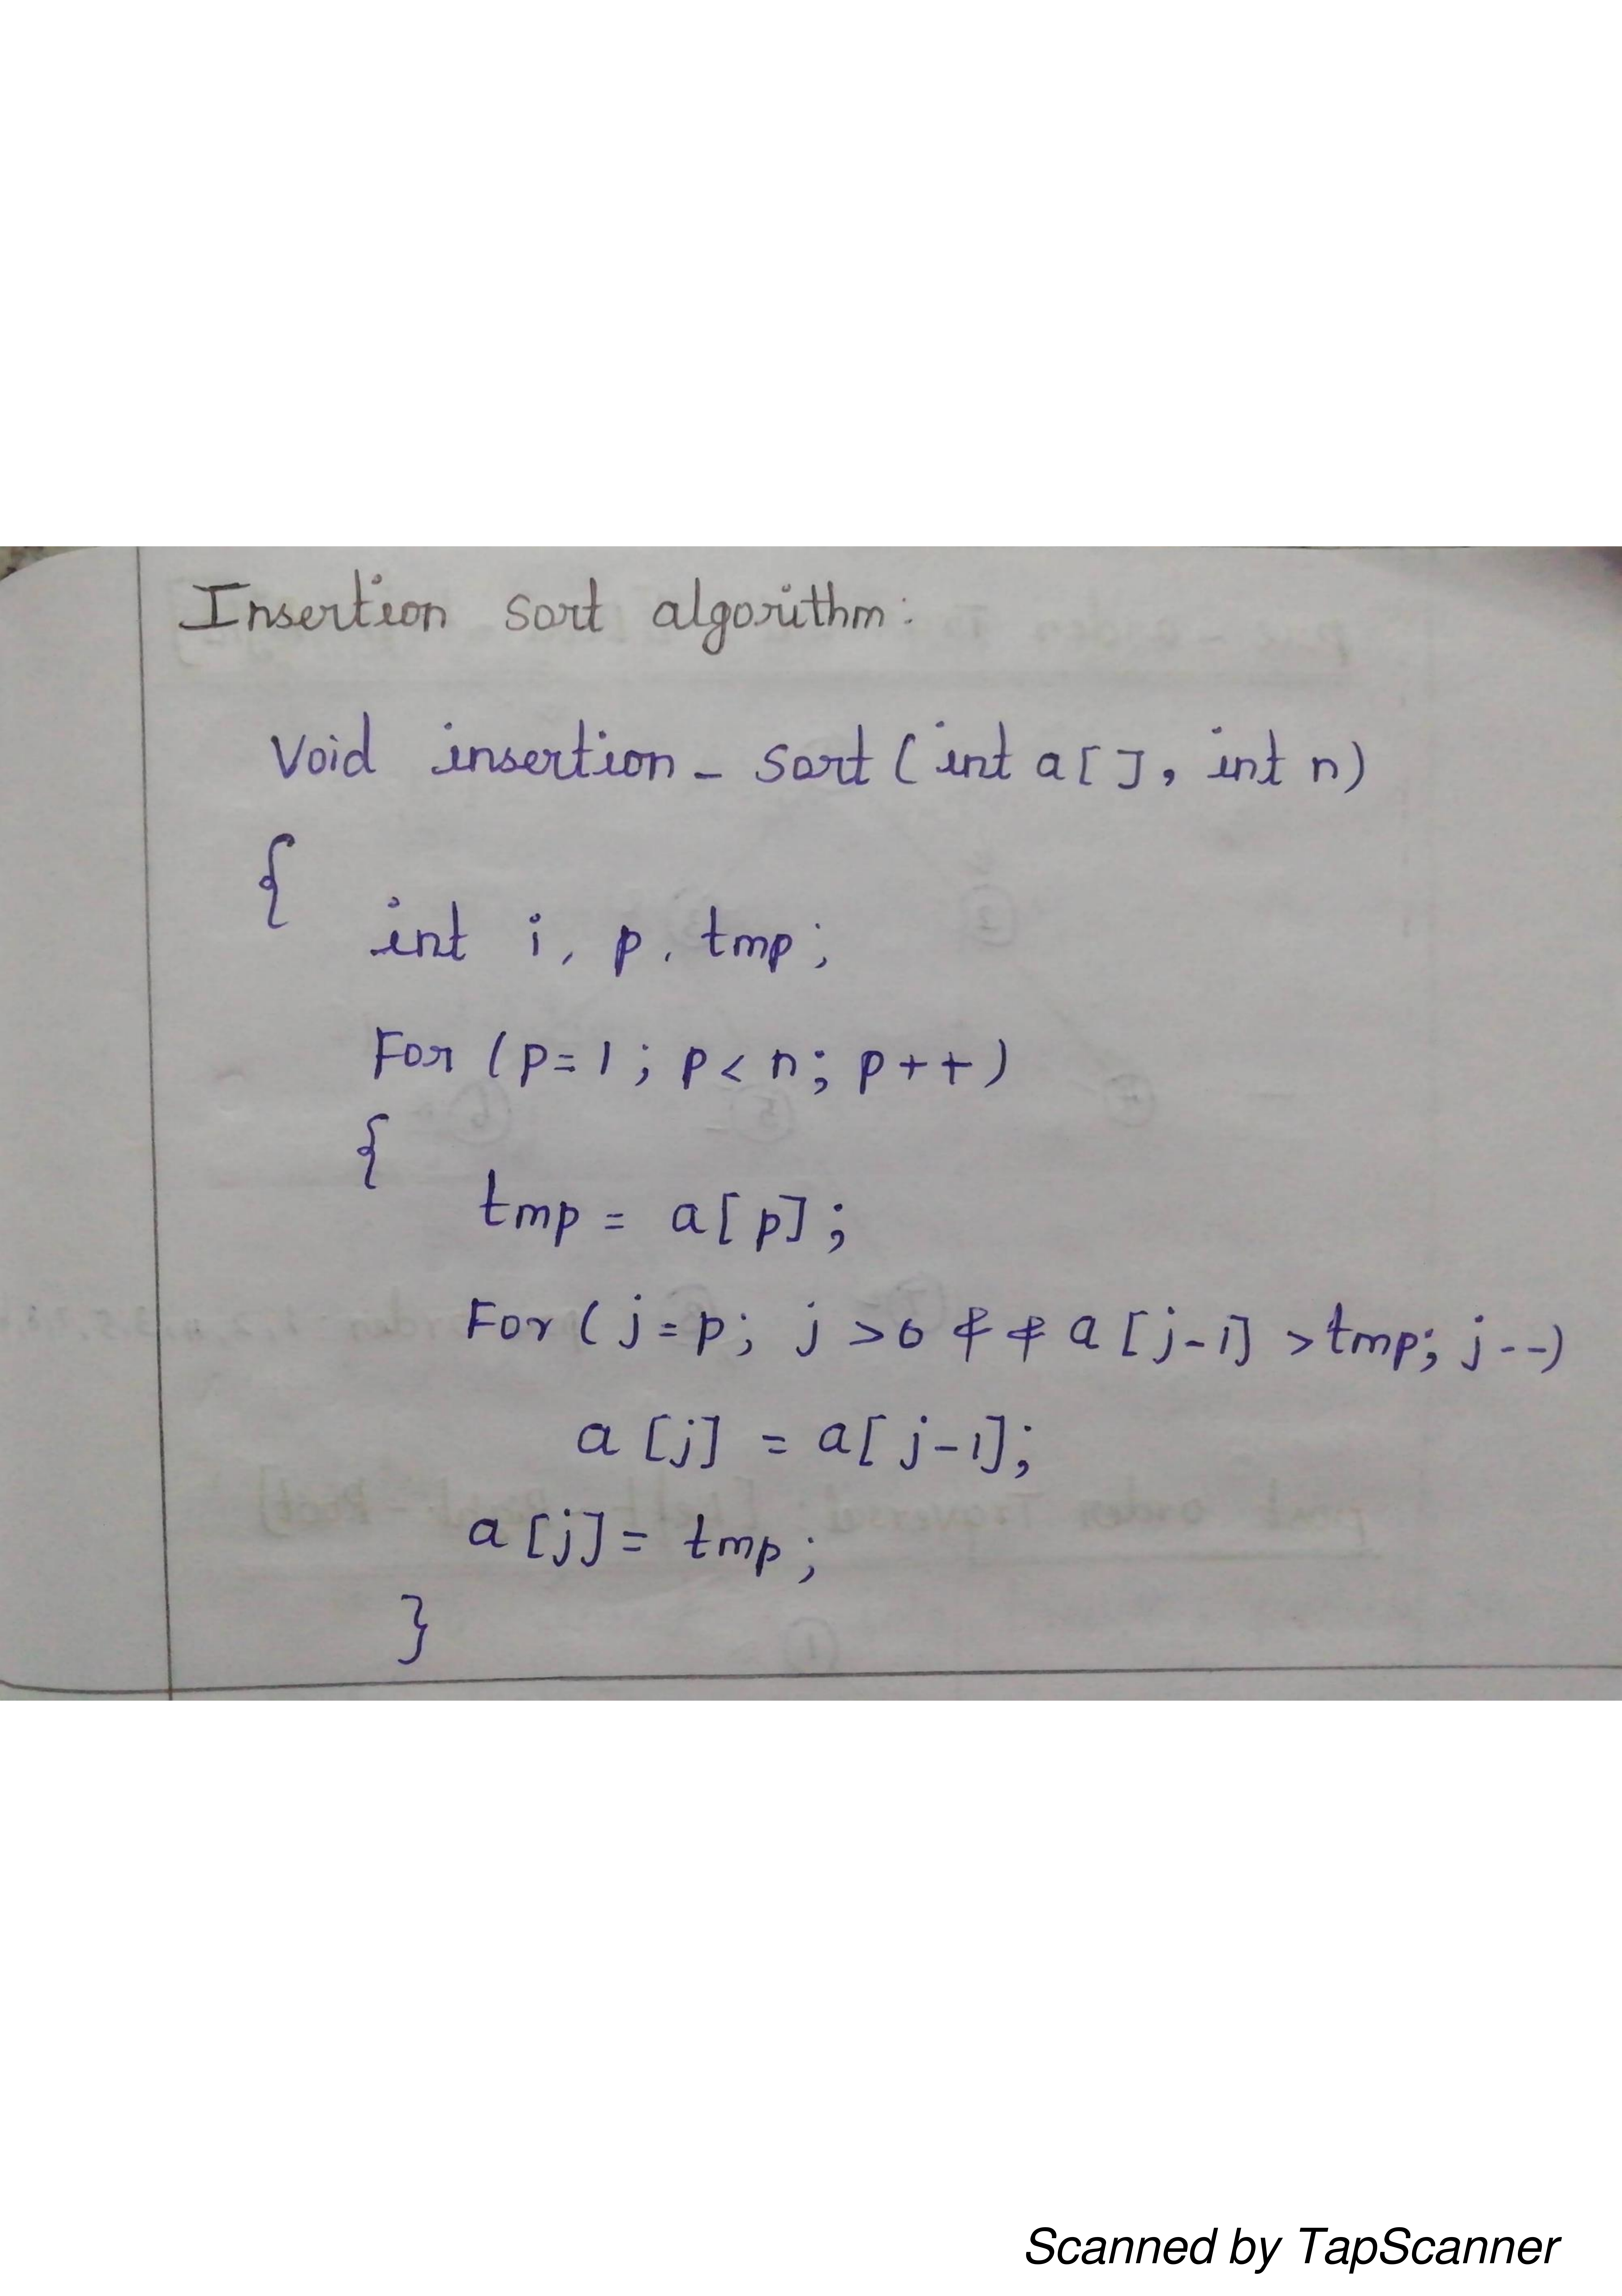 Insertion sort algorithm:
Void insertion_sort(int a[], int n)
{
int i, p, tmp;
For (p=1; p<n; p++)
{
tmp = a[p];
For(j=p; j>0 && a[j-1] >tmp; j--)
a[j] = a[j-1];
a[j]= tmp;
}
Scanned by TapScanner